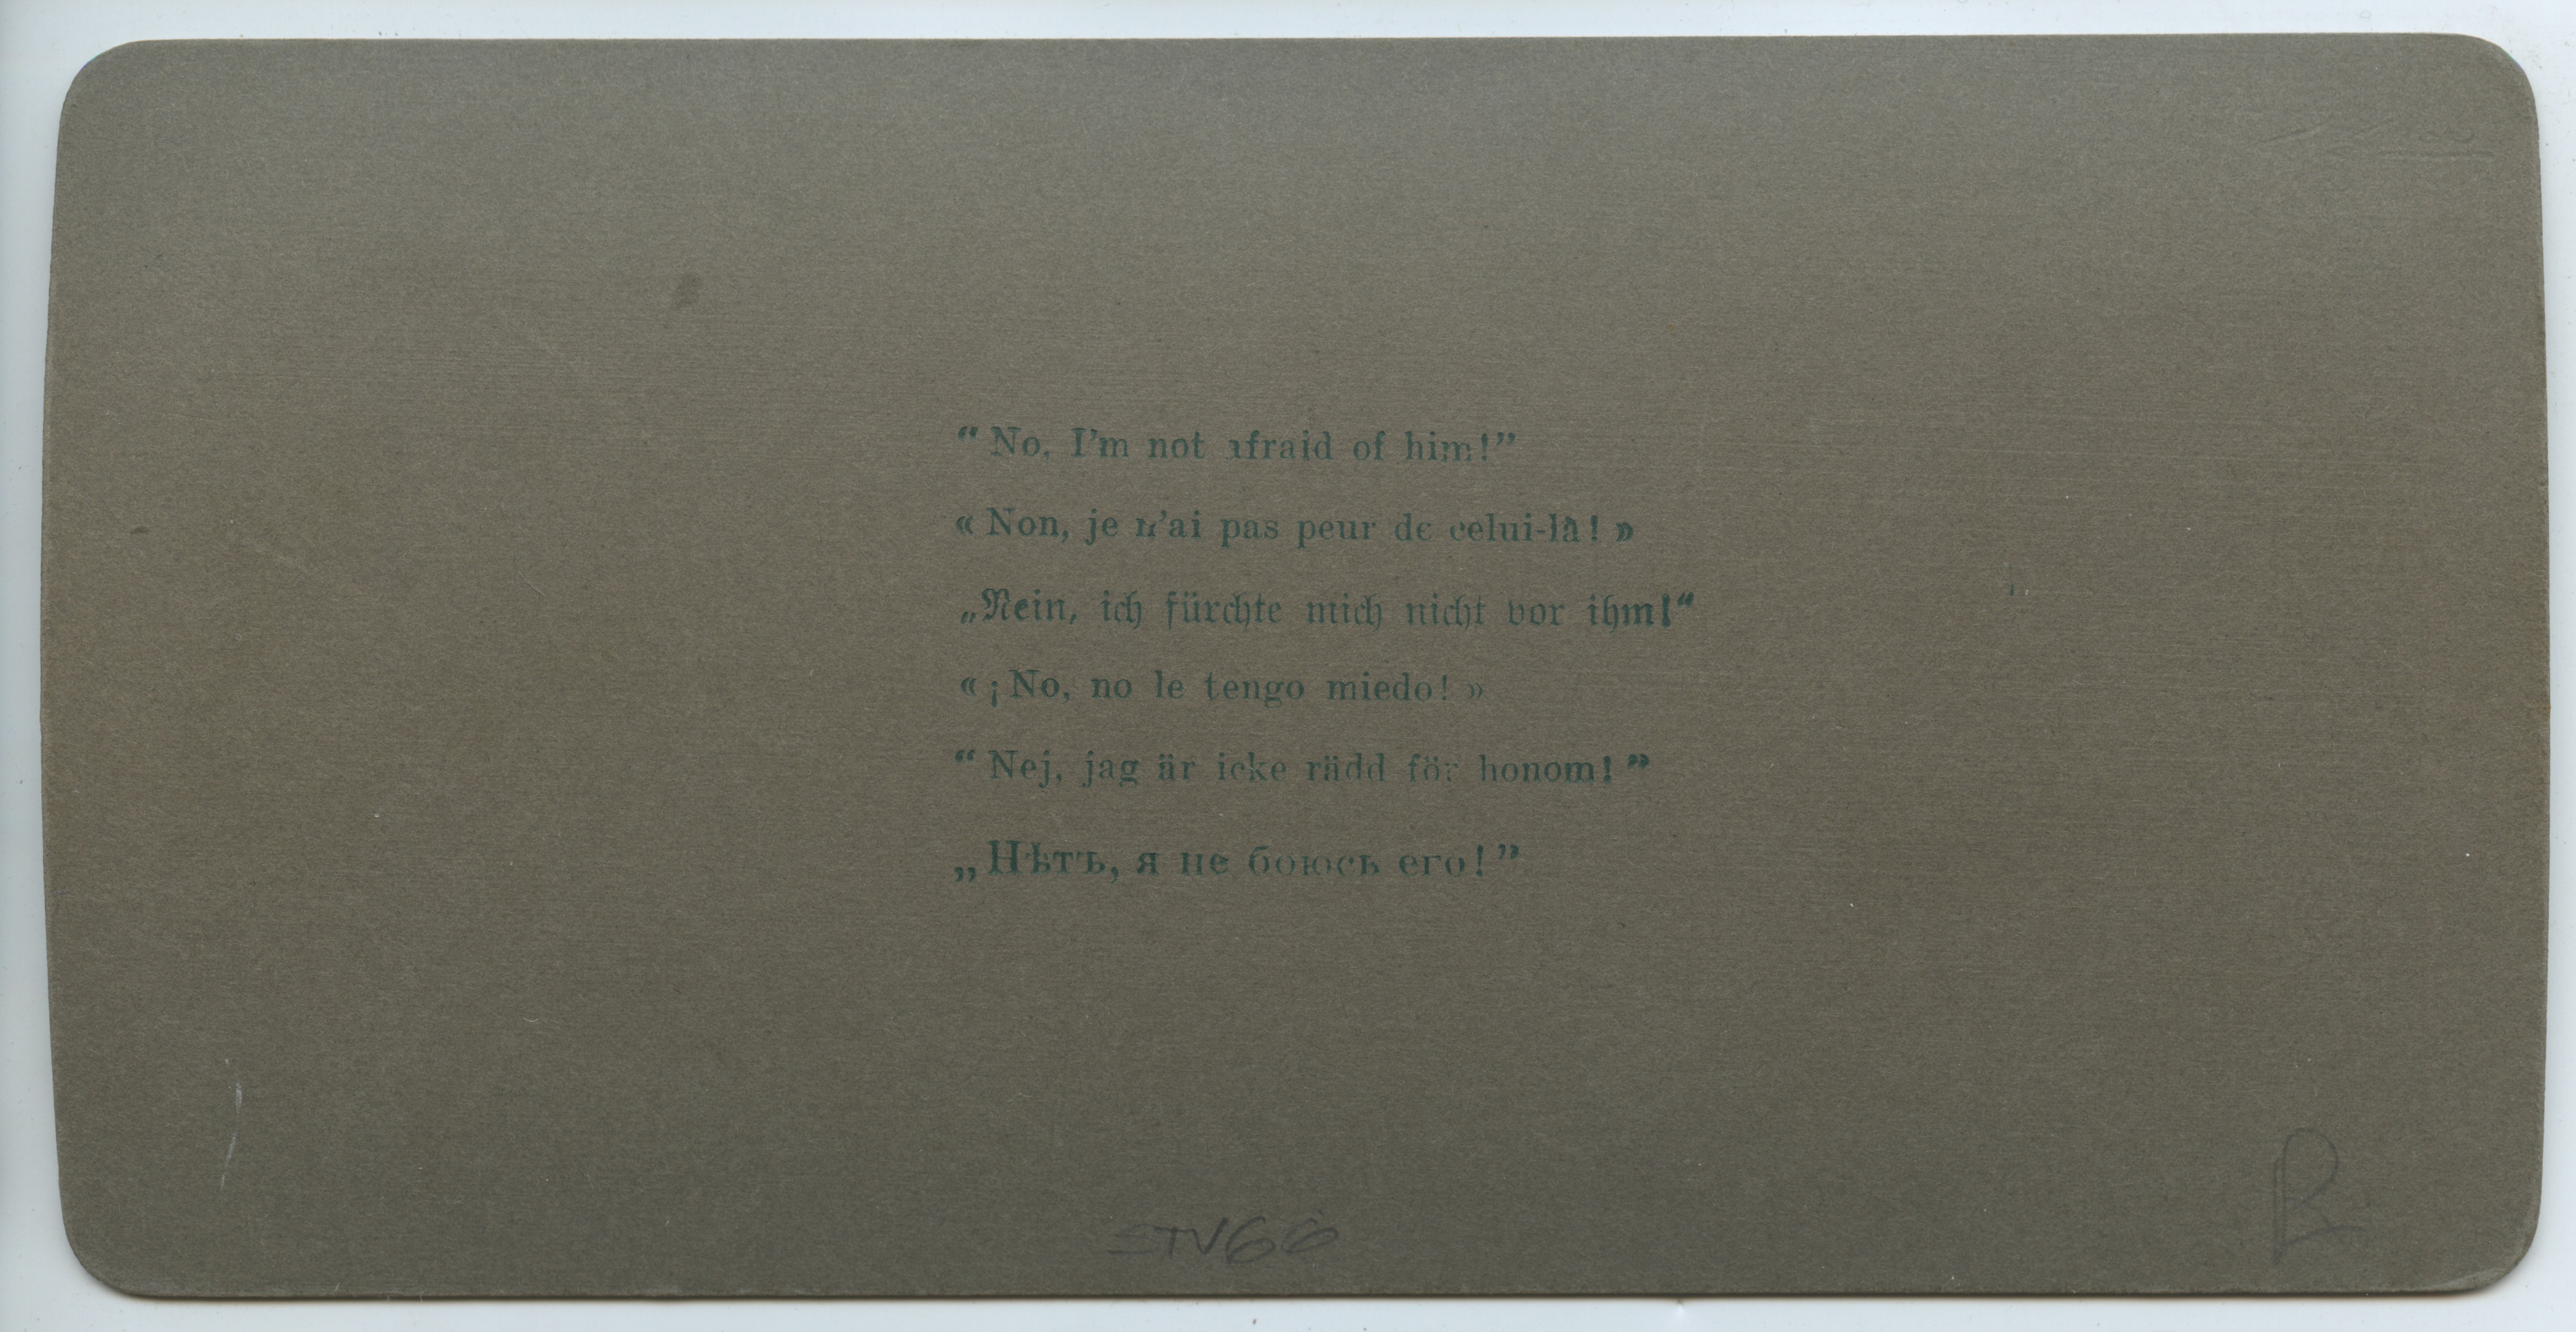 “ No, I’m not afraid of him!”
« Non, je n’ai pas peur de celui-là! »
„Nein, ich fürchte mich nicht vor ihm!“
« ¡No, no le tengo miedo! »
“ Nej, jag är icke rädd för honom! ”
„Нѣтъ, я не боюсь его!”
STV66
R